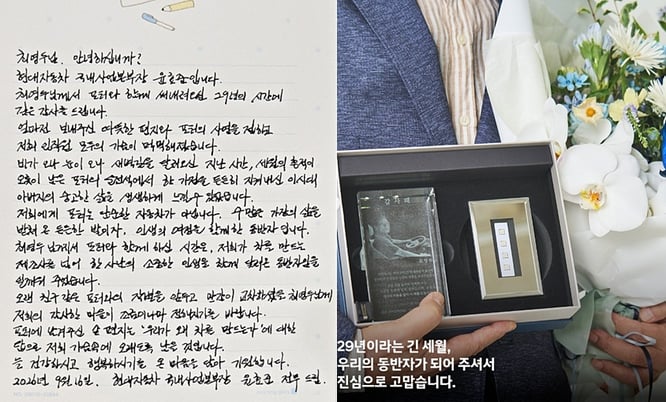 최영수님, 안녕하십니까?
현대자동차 국내사업본부장 윤효준입니다.
최영수님께서 포터와 함께 써내려오신 29년의 시간에
깊은 감사를 드립니다.
얼마전 보내주신 따뜻한 편지와 포터의 사연을 접하고
저희 임직원 모두의 가슴이 먹먹해졌습니다.
비가 오나 눈이 오나 새벽길을 달려오신 지난 시간, 세월의 흔적이
오롯이 남은 포터의 운전석에서 한 가정을 든든히 지켜내신 이시대
아버지의 숭고한 삶을 생생하게 느낄 수 있었습니다.
저희에게 포터는 단순한 자동차가 아닙니다. 수많은 가장의 삶을
받쳐 온 든든한 발이자, 인생의 여정을 함께한 동반자 입니다.
최영수님께서 포터와 함께 하신 시간은, 저희가 차를 만드는
제조사를 넘어 한 사람의 소중한 인생을 함께 달리는 동반자임을
일깨워 주었습니다.
오랜 친구 같은 포터와의 작별을 앞두고 만감이 교차하셨을 최영수님께
저희의 감사한 마음이 조금이나마 전해지기를 바랍니다.
포터에 남겨주신 손 편지는 '우리가 왜 차를 만드는가'에 대한
답으로 저희 가슴속에 오래도록 남을 것입니다.
늘 건강하시고 행복하시기를 온 마음을 담아 기원합니다.
2026년 9월 16일. 현대자동차 국내사업본부장 윤효준 전무 드림.
감사패
29년이라는 긴 세월,
우리의 동반자가 되어 주셔서
진심으로 고맙습니다.